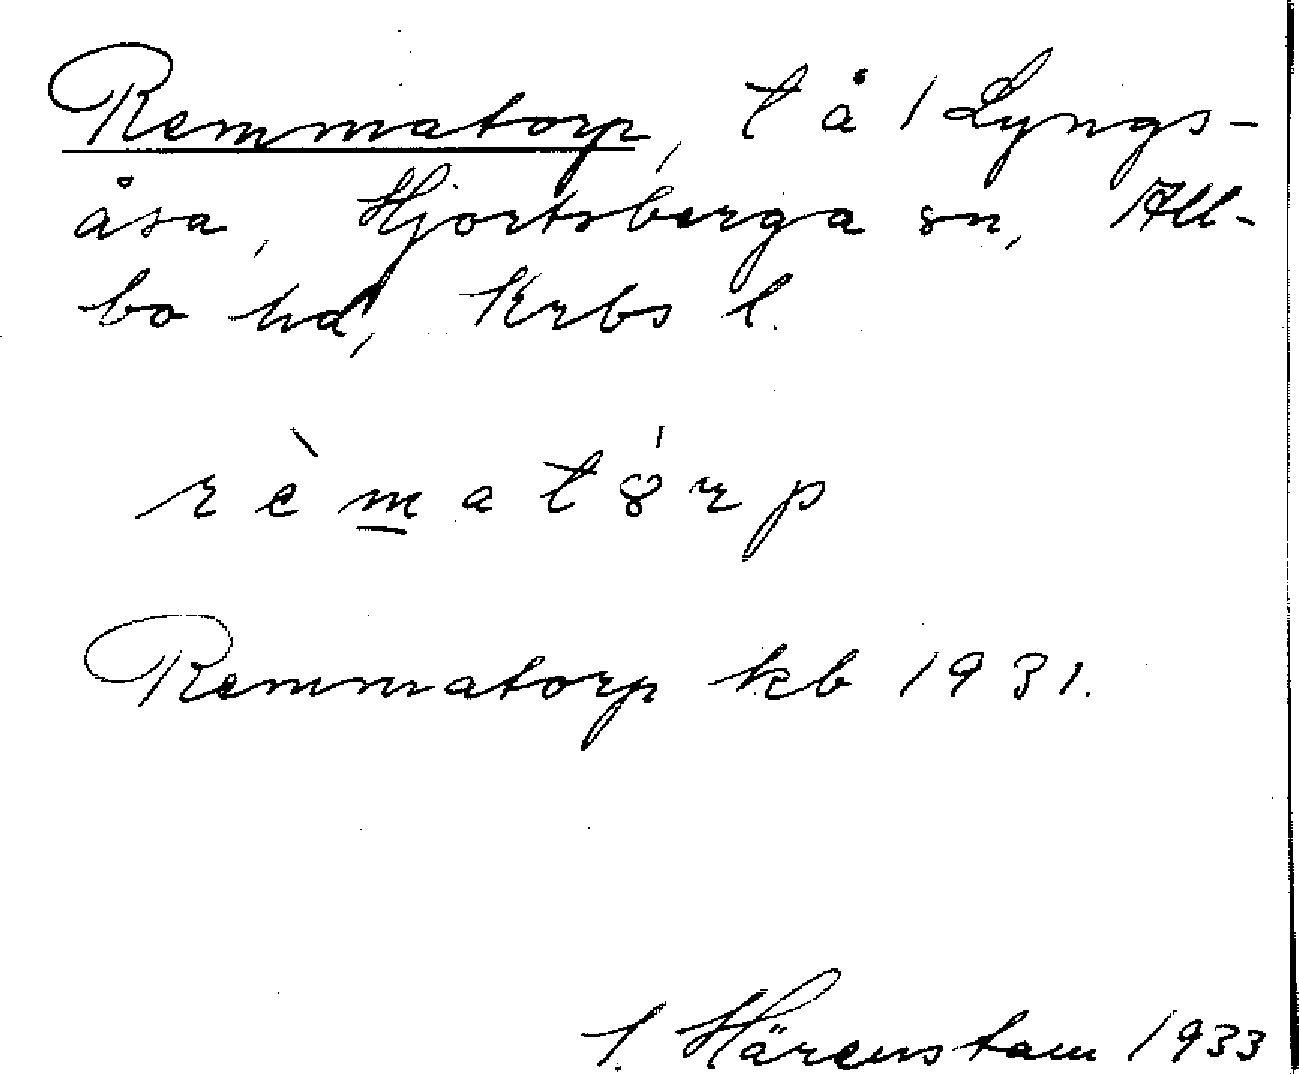 Remmatorp, t å 1 Lyngs-
åsa, Hjortsberga sn, All-
bo hd, Krbs l.
rèmató̤rp
Remmatorp kb 1931.
Härenstam 1933